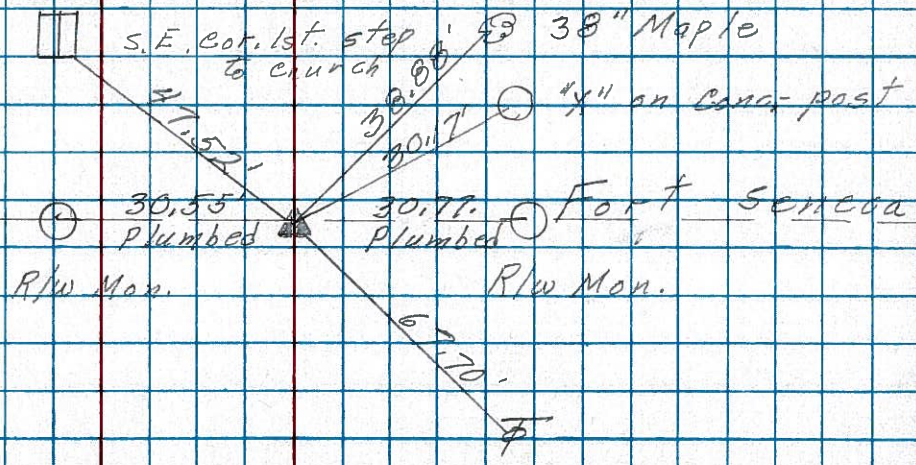 S.E. cor. 1st. step
to church
38" Maple
38.88'
"X" on conc. post
30.17'
47.52'
30.55'
Plumbed
30.77.
Plumbed
Fort Seneca
R/w Mon.
R/w Mon.
67.70